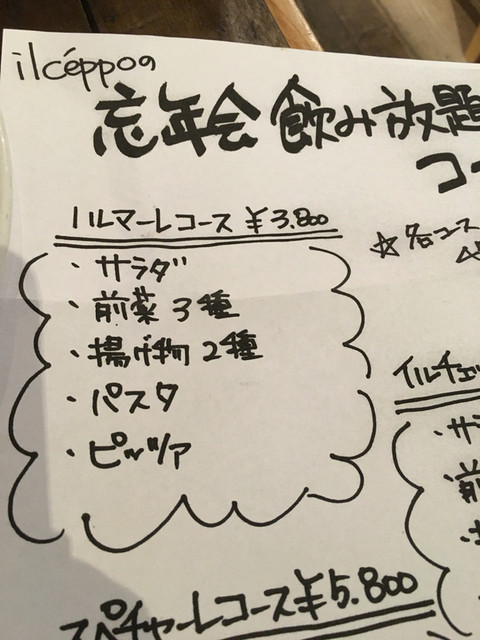 ilcéppoの
忘年会 飲み放題
コー
ノルマーレコース ¥3.800
☆各コース
・サラダ
・前菜 3種
・揚げ物 2種
・パスタ
・ピッツァ
イルチェッ
・サラ
・前
スペチャーレコース ¥5.800